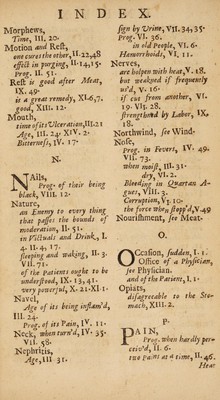 INDEX.
Morphews,
Time, III. 20.
Motion and Rest,
one cures the other, II. 22, 48
effect in purging, II. 14, 15.
Prog. II. 51.
Rest is good after Meat,
IX. 49.
is a great remedy, XI. 6, 7.
good, XIII. 12.
Mouth,
time of its Ulceration, III. 21
Age, III. 24. XIV. 2.
Bitterness, IV. 17.
N.
Nails,
Prog. of their being
black, VIII. 12.
Nature,
an Enemy to every thing
that passes the bounds of
moderation, II. 51.
in Victuals and Drink, I.
4. II. 4, 17.
sleeping and waking, II. 3.
VII. 71.
of the Patients ought to be
understood, IX. 13, 41.
very powerful, X. 21. XI. 1.
Navel,
Age of its being inflam'd,
III. 24.
Prog. of its Pain, IV. 11.
Neck, when turn'd, IV. 35.
VII. 58.
Nephritis,
Age, III. 31.
sign by Urine, VII. 34, 35.
Prog. VI. 36.
in old People, VI. 6.
Hemorrhoids, VI. 11.
Nerves,
are helpen with heat, V. 18.
but weakned if frequently
us'd, V. 16.
if cut from another, VI.
19. VII. 28.
strengthened by Labor, IX.
18.
Northwind, see Wind.
Nose,
Prog. in Fevers, IV. 49.
VII. 73.
when moist, III. 31.
dry, VI. 2.
Bleeding in Quartan A-
gues, VIII. 3.
Corruption, V. 10.
the force when stopp'd, V. 49
Nourishment, see Meat.
O.
Occasion, sudden, I. 1.
Office of a Physician,
see Physician.
and of the Patient, I. 1.
Opiats,
disagreeable to the Sto-
mach, XIII. 2.
P.
PAIN,
Prog. when hardly per-
ceiv'd, II. 6.
two Pains at a time, II. 46.
Heat